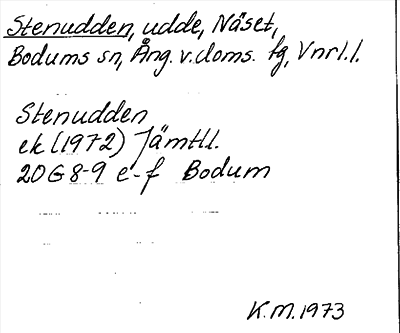 Stenudden, udde, Näset,
Bodums sn, Ång. v. doms. fg, Vnrl.l.
Stenudden
ek (1972) Jämtll.
20G8-9 e-f Bodum
K.M. 1973